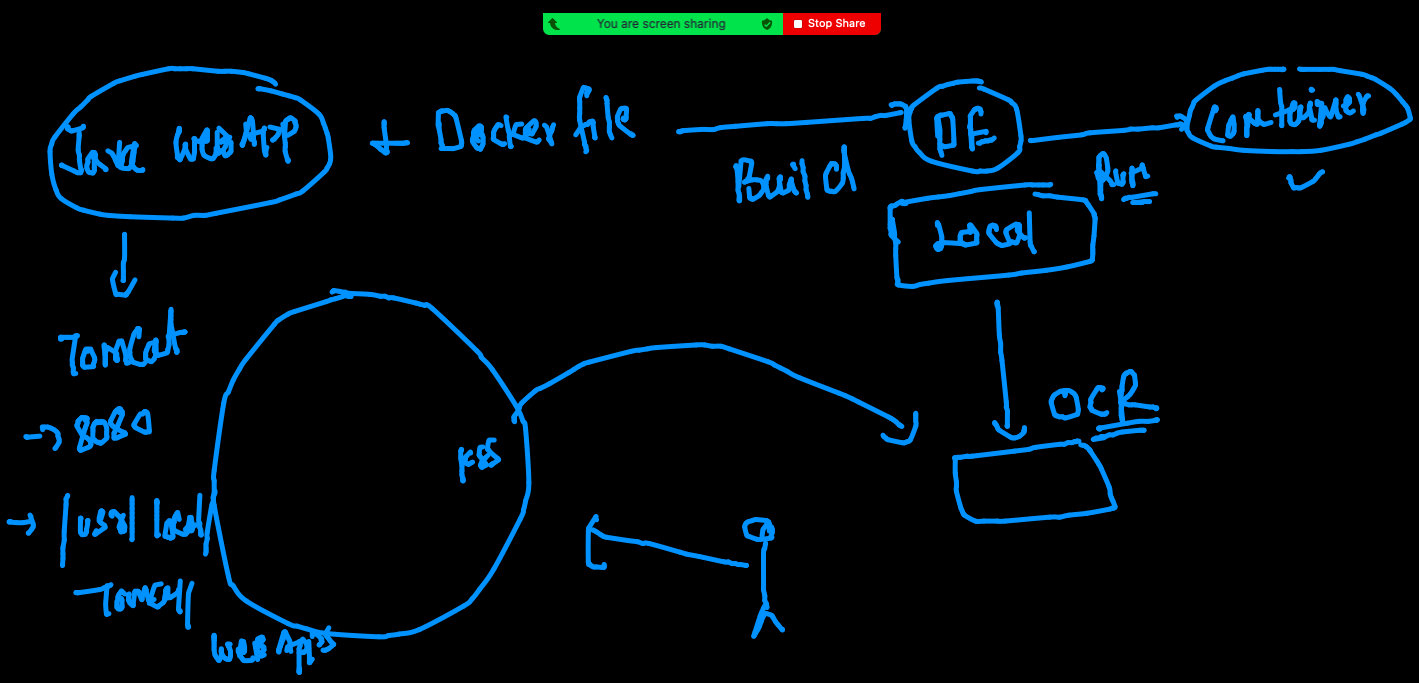 You are screen sharing Stop Share
Java WebApp + Docker file
Build
DE
Run
Container
Local
Tomcat
→ 8080
→ /usr/local/
Tomcat/
WebApps
K8S
OCR